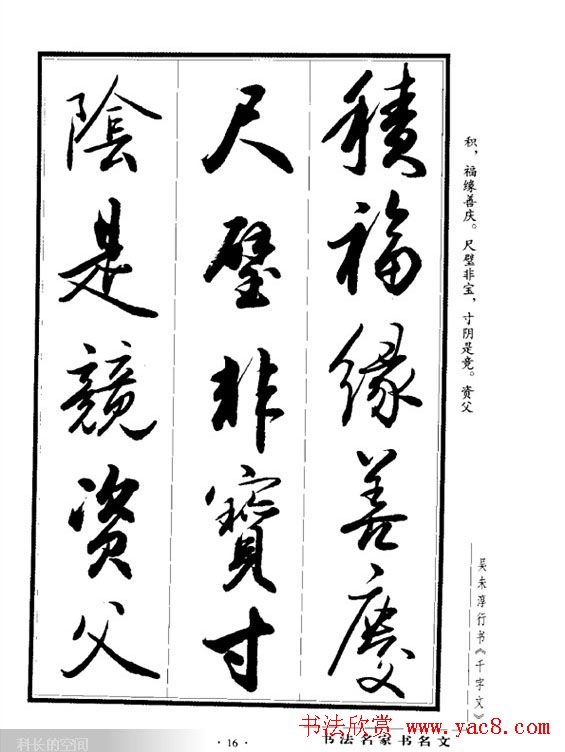 積福緣善慶
尺璧非寶寸
陰是競資父
积，福缘善庆。尺璧非宝，寸阴是竞。资父
吴未淳行书《千字文》
科长的空间
·16·
书法名家书名文
书法欣赏 www.yac8.com